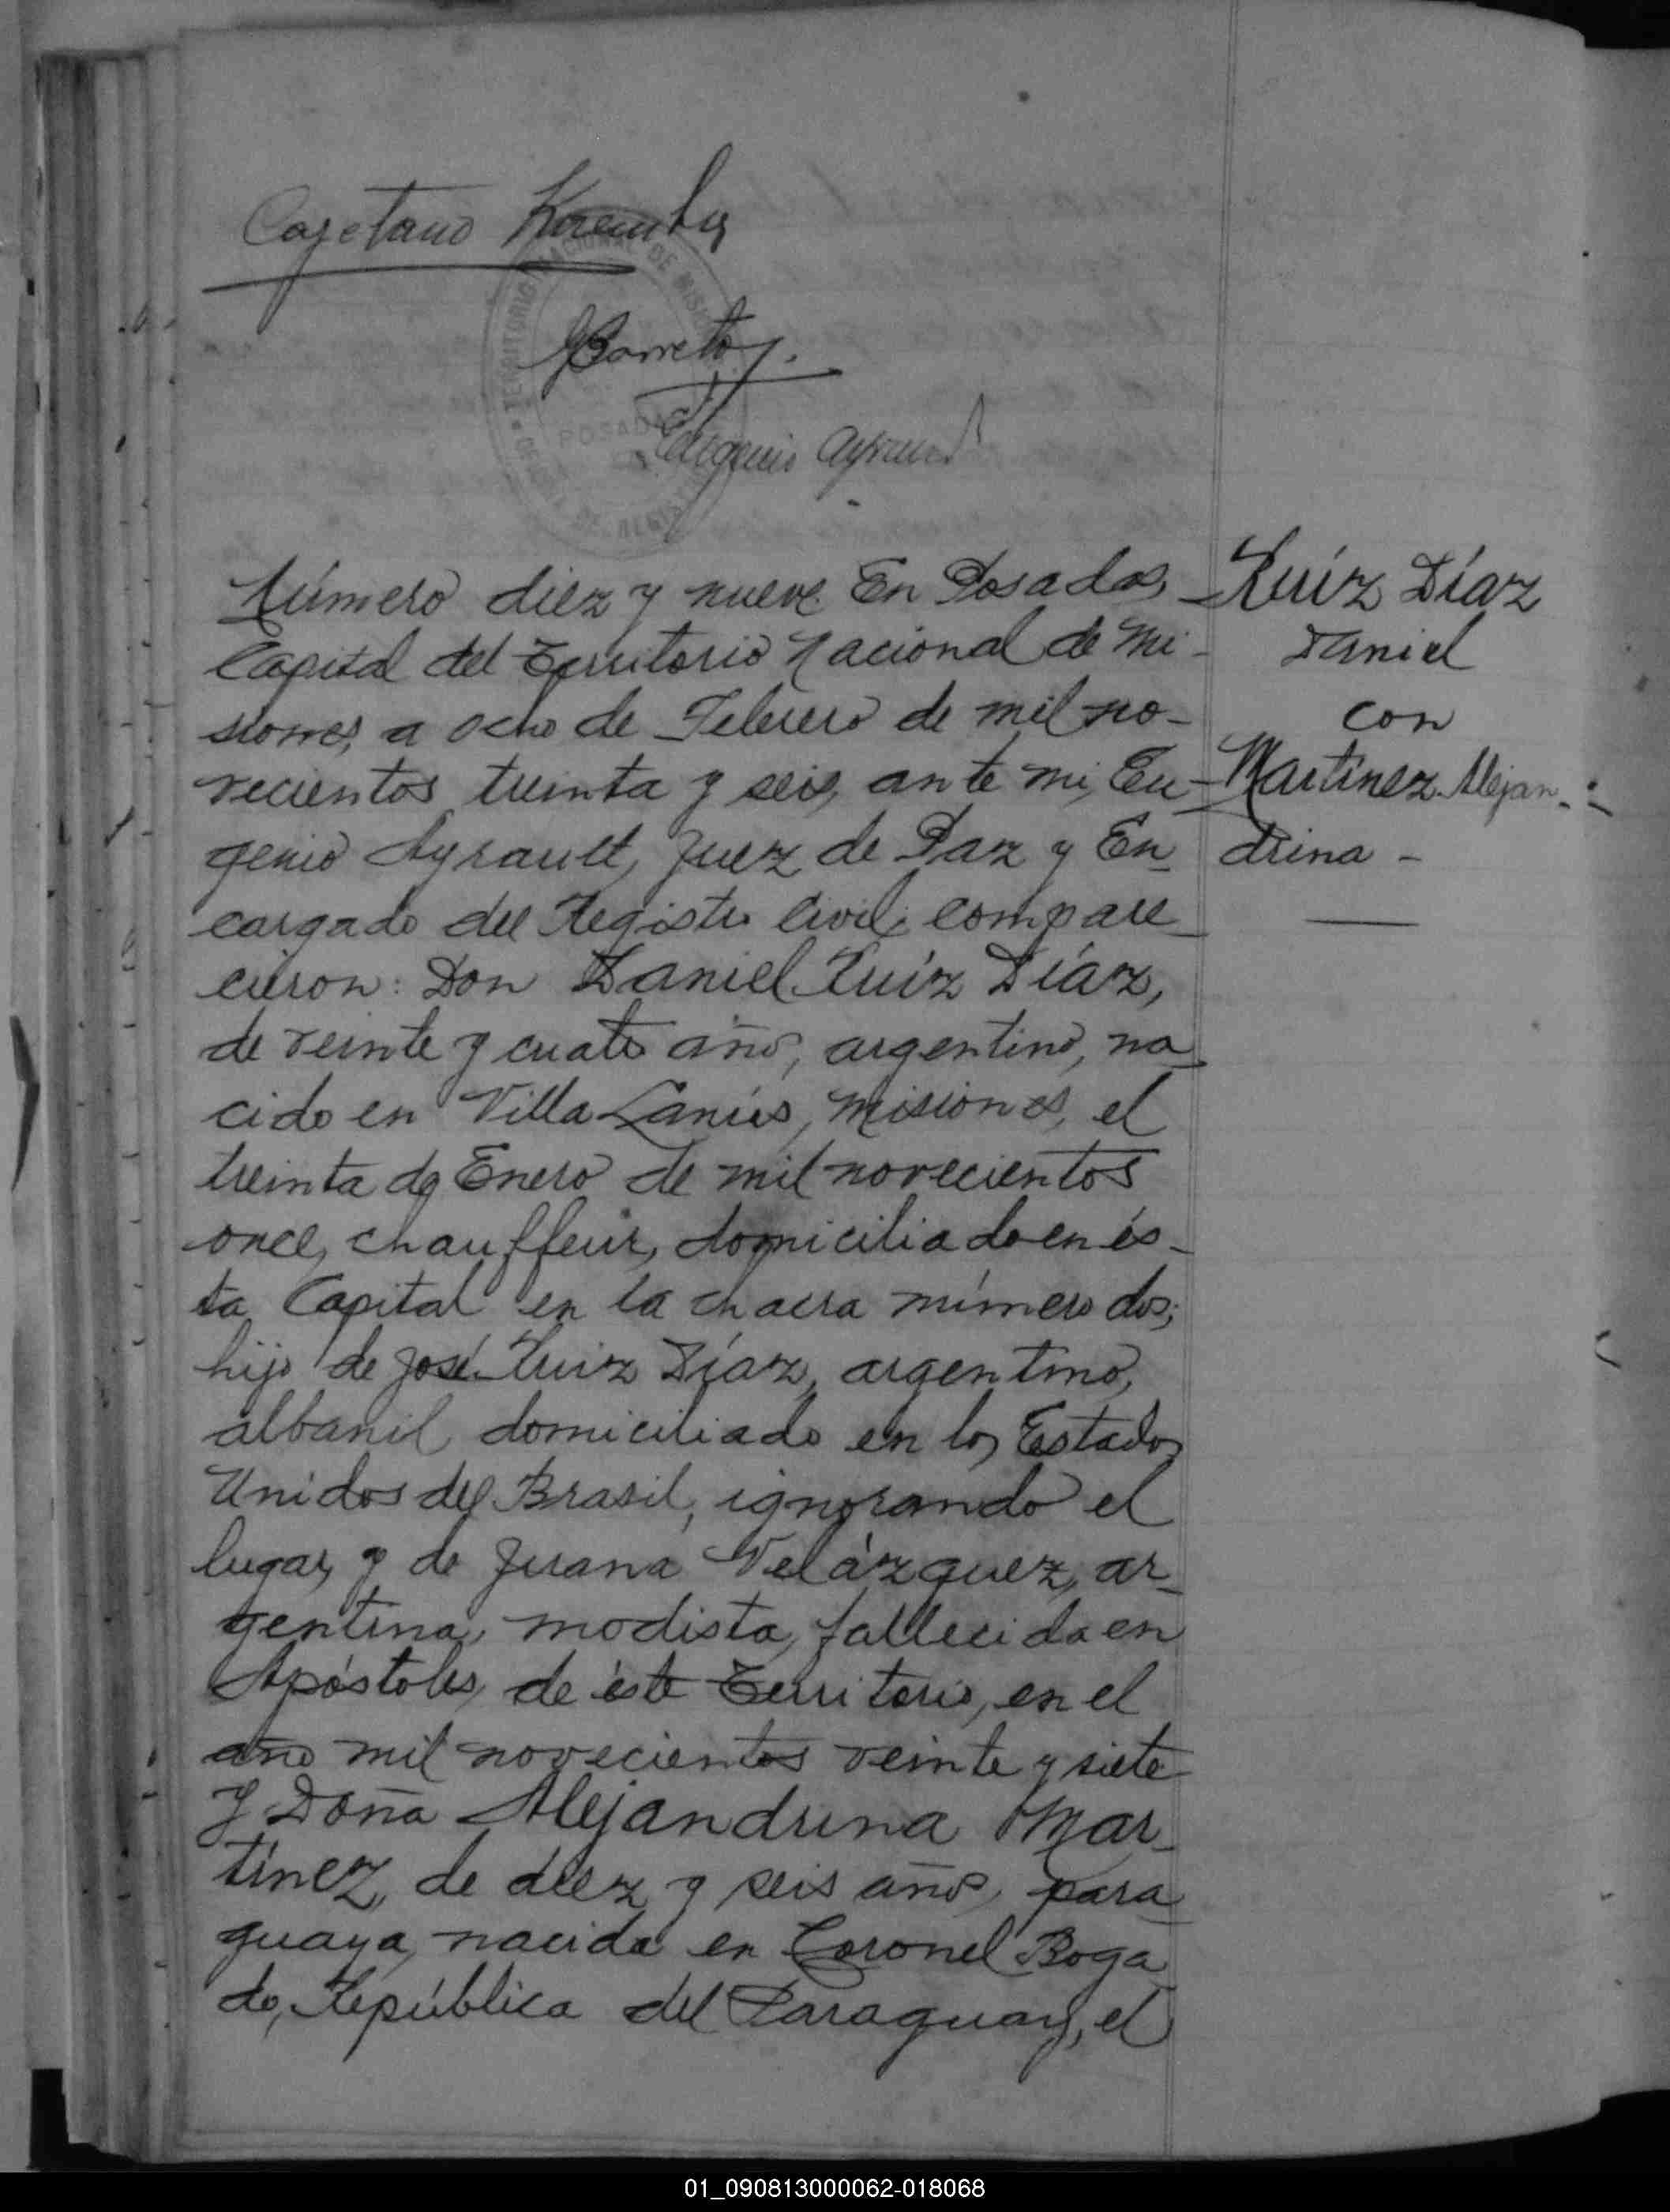 Cayetano
Barreto
TERRITORIO NACIONAL DE MISIONES
POSADAS
Eugenio Ayrault
Número diez y nueve. En Posadas,
Capital del Territorio Nacional de Mi-
siones, a ocho de Febrero de mil no-
vecientos treinta y seis, ante mi, Eu-
genio Ayrault, Juez de Paz y En-
cargado del Registro Civil, compare-
cieron: Don Daniel Ruíz Díaz,
de veinte y cuatro años, argentino, na-
cido en Villa Lanús, Misiones, el
treinta de Enero de mil novecientos
once, chauffeur, domiciliado en és-
ta Capital en la chacra número dos;
hijo de José Ruiz Díaz, argentino,
albanil, domiciliado en los Estados
Unidos del Brasil, ignorando el
lugar, y de Juana Velázquez, ar-
gentina, modista, fallecida en
Apóstoles, de éste Territorio, en el
año mil novecientos veinte y siete
y Doña Alejandrina Mar-
tínez, de diez y seis años, para-
guaya, nacida en Coronel Boga-
do, República del Paraguay, el
Ruíz Díaz
Daniel
con
Martínez Alejan-
drina -
01_090813000062-018068